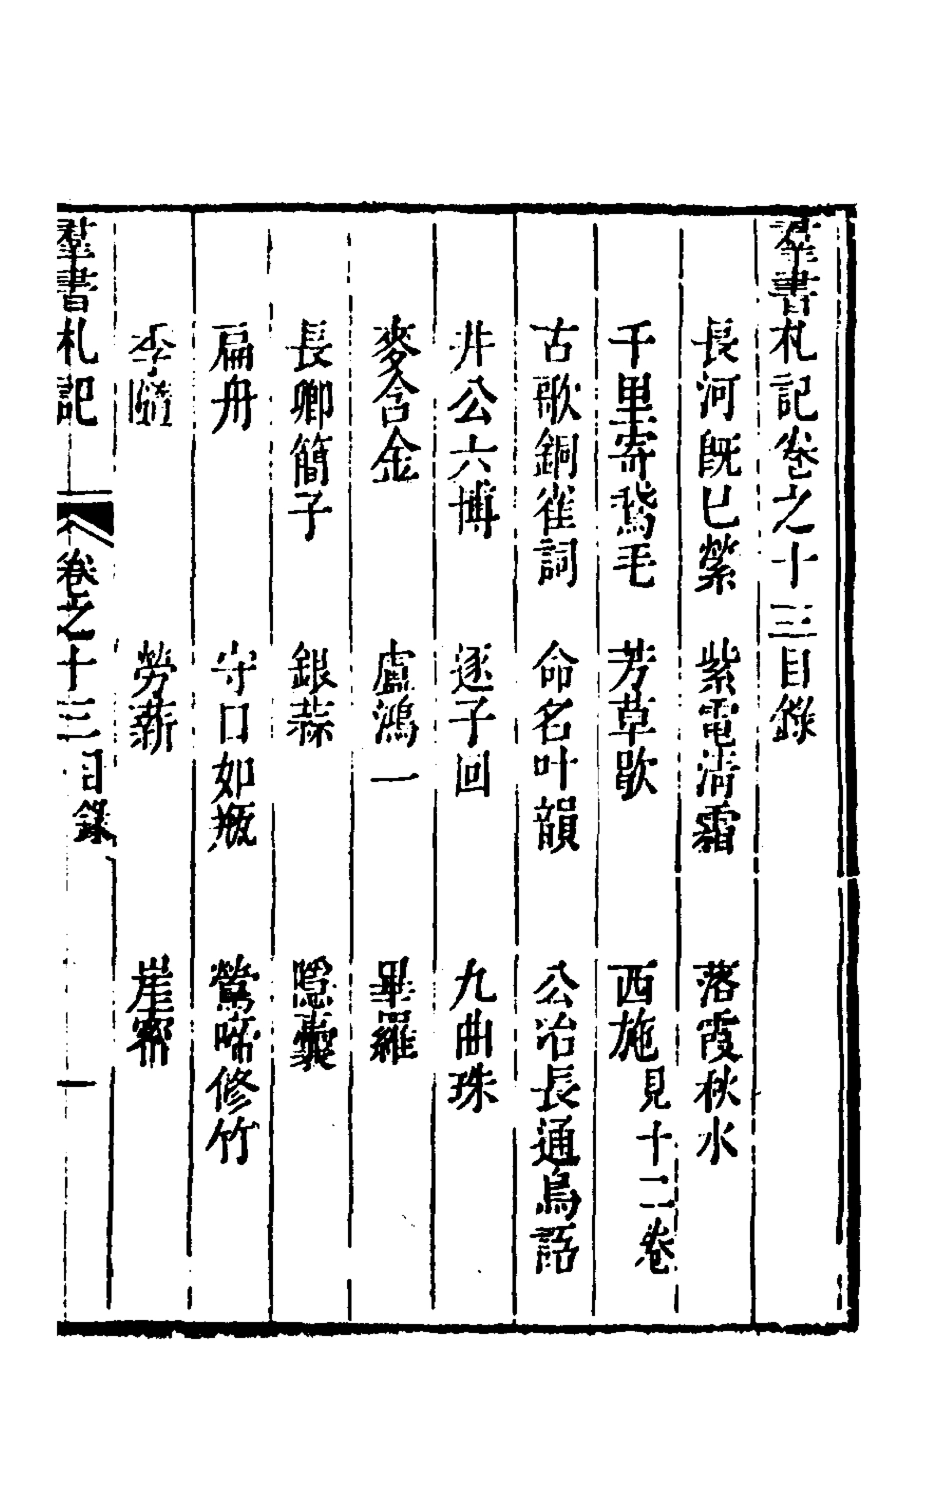 羣書札記卷之十三目錄
長河既已縈　紫電清霜　落霞秋水
千里寄鵞毛　芳草歇　西施見十二卷
古歌銅雀詞　命名叶韻　公冶長通鳥語
井公六博　逐子回　九曲珠
麥含金　盧鴻一　畢羅
長卿簡子　銀蒜　隱囊
扁舟　守口如瓶　鶯啼修竹
李隨　勞薪　崖密
羣書札記　卷之十三目錄　一